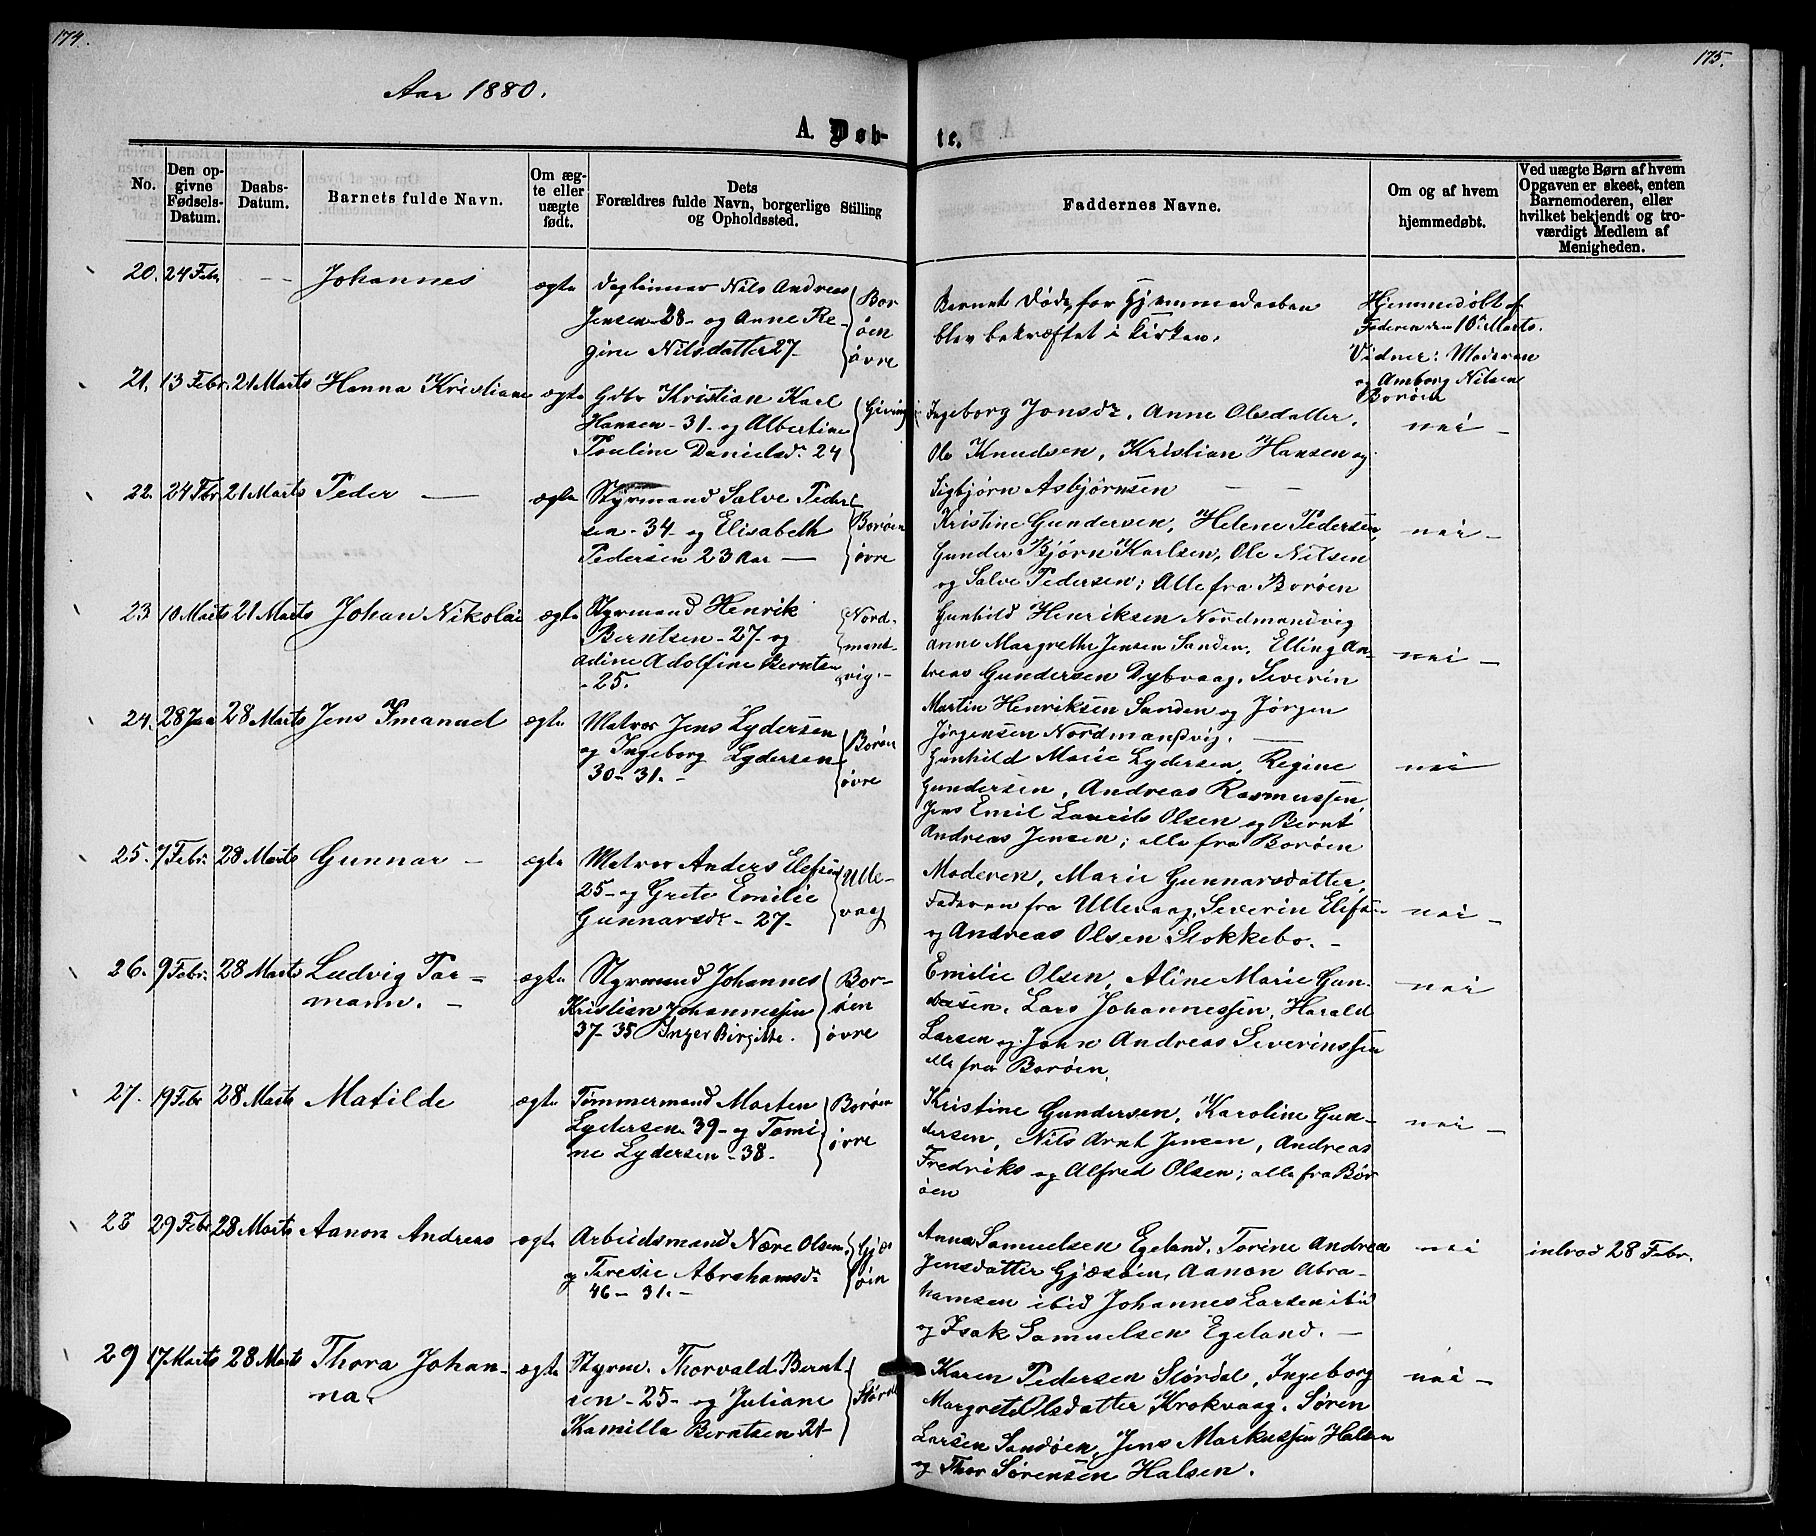 174.
175.
Aar 1880.
A. Døb-
te.
No.
Den op-
givne
Fødsels-
Datum.
Daabs-
Datum.
Barnets fulde Navn.
Om æg-
te eller
uægte
født.
Dets
Forældres fulde Navn, borgerlige Stilling
og Opholdssted.
Faddernes Navne.
Om og af hvem
hjemmedøbt.
Ved uægte Børn af hvem
Opgaven er skeet, enten
Barnemoderen, eller
hvilket bekjendt og tro-
værdigt Medlem af
Menigheden.
20. 24 Febr. — Johannes ægte Daglønner Nils Andreas
Jensen - 28 - og Anne Re-
gine Nilsdatter 27 -
Bor
øen
øvre
Barnet døde, før Hjemmedaaben
blev bekræftet i Kirken.
Hjemmedøbt af
Faderen den 10de Marts.
Vidner: Moderen
og Amborg Nilsen
Borøen
21. 13 Febr. 21 Marts Hanna Kristiane ægte Gdbr Kristian Karl
Hansen - 31 - og Albertine
Pouline Danielsdr. 24
Giving
Ingeborg Jonsdr. Anne Olsdatter,
Ole Knudsen, Kristian Hansen og
Sigbjørn Asbjørnsen — —
nei -
22. 24 Fbr 21 Marts Peder — ægte Styrmand Salve Peder
sen - 34 - og Elisabeth
Pedersen 23 Aar —
Borøen
øvre
Kristine Gundersen, Helene Pedersen,
Gunder Bjørn Karlsen, Ole Nilsen
og Salve Pedersen; Alle fra Borøen
nei -
23 10 Marts 21 Marts Johan Nikolai ægte Styrmand Henrik
Berntsen - 27 - og
Adine Adolfine Berntsen
- 25.
Nord-
mands-
vig. -
Gunhild Henriksen Nordmandvig
Anne Margrethe Jensen Sanden, Elling An-
dreas Gundersen Dybvaag, Severin
Martin Henriksen Sanden og Jørgen
Jørgensen Nordmandsvig. —
nei -
24. 28 Jan 28 Marts Jens Imanuel ægte Matros Jens Lydersen
og Ingeborg Lydersen
30 - 31. -
Borøen
øvre
Gunhild Marie Lydersen, Regine
Gundersen, Andreas Rasmussen,
Jens Emil Laurits Olsen og Bernt
Andreas Jensen; alle fra Borøen
nei
25. 7 Febr. 28 Marts Gunnar - ægte Matros Anders Elefsen
25 - og Grete Emilie
Gunnarsdr - 27 -
Ulle-
vaag
Moderen, Marie Gunnarsdatter,
Faderen fra Ullevaag, Severin Elefs-
og Andreas Olsen Stokkebo. -
nei -
26. 9 Febr. 28 Marts Ludvig Tar-
mann. -
ægte Styrmand Johannes
Kristian Johannessen
37 - 35 Inger Birgitte.
Bor-
øen
øvre
Emilie Olsen, Aline Marie Gun-
dersen, Lars Johannessen, Harald
Larsen og John Andreas Severinssen
alle fra Borøen,
nei
27. 19 Febr 28 Marts Matilde ægte Tømmermand Morten
Lydersen 39 - og Tomi
ne Lydersen - 38 -
Borøen
øvre
Kristine Gundersen, Karoline Gun-
dersen, Nils Arnt Jensen, Andreas
Fredriks og Alfred Olsen; alle fra Bor
øen
nei -
28 29 Febr 28 Marts Aanon Andreas ægte Arbeidsmand Nære Olsen
og Teresie Abrahamsdr
46 - 31. -
Gjæs
øen
Anna Samuelsen Egeland, Torine Andrea
Jensdatter Gjæsøen, Aanon Abra-
hamsen ibid Johannes Larsen ibid
og Isak Samuelsen Egeland. —
nei
introd 28 Febr.
29 17 Marts 28 Marts Thora Johan-
na.
ægte Styrm. Thorvald Bernt-
sen - 25 - og Juliane
Kamilla Berntsen 21 -
Størdal
Karen Pedersen Størdal, Ingeborg
Margrete Olsdatter Krokvaag, Søren
Larsen Sandøen, Jens Markussen Halsen
og Thor Sørensen Halsen.
nei -